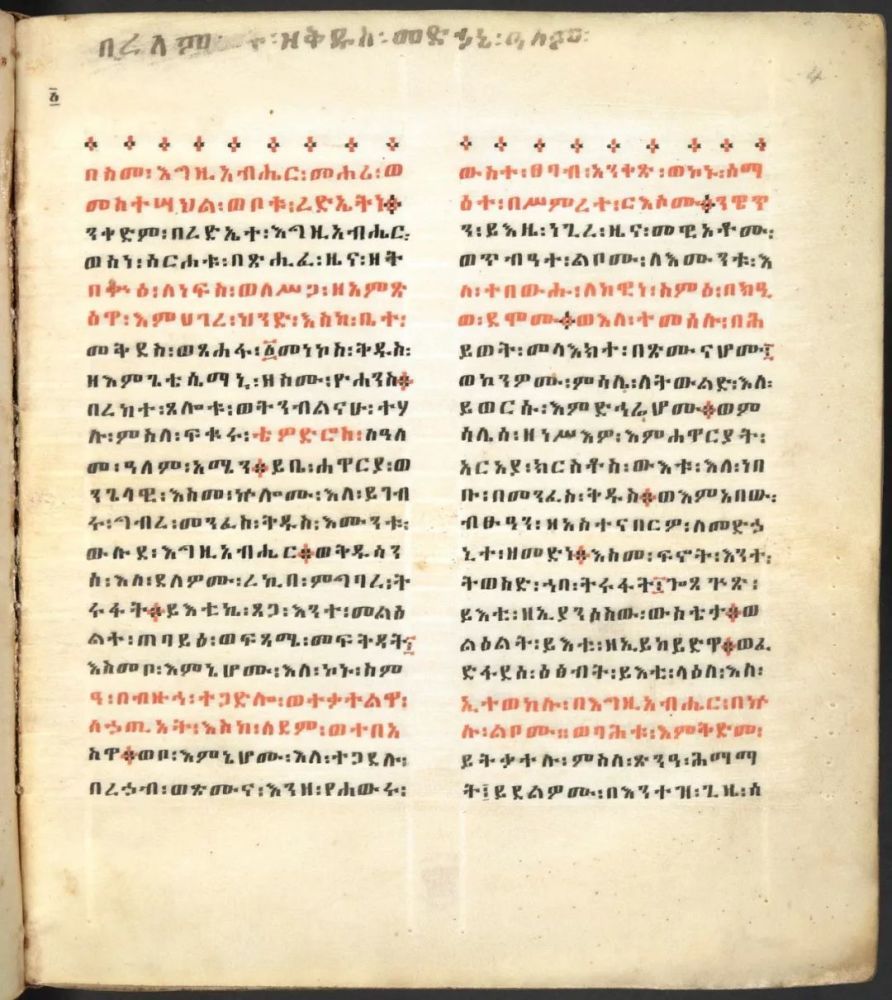 በረለም፡ ፡ ዘቅዱስ፡ መድኃኒ፡ ዓለም፡
4
፩
በስመ፡ እግዚአብሔር፡ መሐሪ፡ ወ
መስተሣህል፡ ወቦቱ፡ ረድኤትነ።
ንቀድም፡ በረድኤተ፡ እግዚአብሔር፡
ወስነ፡ ስርሐቱ፡ በጽሒፈ፡ ዜና፡ ዘት
በቍዕ፡ ለነፍስ፡ ወለሥጋ፡ ዘአምጽ
ዕዋ፡ እምሀገረ፡ ህንድ፡ እስከ፡ ቤተ፡
መቅደስ፡ ወጸሐፋ፡ ፩መነኮስ፡ ቅዱስ፡
ዘእምጌቴሴማኒ፡ ዘስሙ፡ ዮሐንስ።
በረከተ፡ ጸሎቱ፡ ወትንብልናሁ፡ ተሃ
ሉ፡ ምስለ፡ ፍቁሩ፡ ቴዎድሮስ፡ ለዓለ
መ፡ ዓለም፡ አሜን። ይቤ፡ ሐዋርያ፡ ወ
ንጌላዊ፡ እስመ፡ ኵሎሙ፡ እለ፡ ይገብ
ሩ፡ ግብረ፡ መንፈስ፡ ቅዱስ፡ እሙንቱ፡
ውሉደ፡ እግዚአብሔር። ወቅዱሳን
ሰ፡ እለ፡ ደለዎሙ፡ ረኪበ፡ ምግባረ፡ ት
ሩፋት። ይእቲኬ፡ ጸጋ፡ እንተ፡ መልዕ
ልት፡ ጠባይዕ፡ ወፍጻሜ፡ መፍትዳት፤
እስመቦ፡ እምኒሆሙ፡ እለ፡ ኮኑ፡ ስም
ዓ፡ በብዙኅ፡ ተጋድሎ፡ ወተቃትልዋ፡
ለኃጢአት፡ እስከ፡ ለደም፡ ወተበአ
ስዋ። ወቦ፡ እምኒሆሙ፡ እለ፡ ተጋደሉ፡
በረኃብ፡ ወጽሙና፡ እንዘ፡ የሐውሩ፡
ውስተ፡ ፀባብ፡ አንቀጽ፡ ወኮኑ፡ ሰማ
ዕተ፡ በሥምረተ፡ ርእሶሙ። ንዌጥ
ን፡ ይእዜ፡ ነጊረ፡ ዜና፡ መዊአቶሙ፡
ወጥብዓተ፡ ልቦሙ፡ ለእሙንቱ፡ እ
ለ፡ ተበውሑ፡ ለከዊነ፡ ስምዕ፡ በክዒ
ወ፡ ደሞሙ። ወእለ፡ ተመሰሉ፡ በሕ
ይወት፡ መላእክተ፡ በጽሙናሆሙ፤
ወኮንዎሙ፡ ምሳሌ፡ ለትውልድ፡ እለ፡
ይወርሱ፡ እምድኅሬሆሙ። ወም
ሳሌሰ፡ ዘነሥእዎ፡ እምሐዋርያት፡
አርአያ፡ ክርስቶስ፡ ውእቱ፡ እለ፡ ነበ
ቡ፡ በመንፈስ፡ ቅዱስ። ወእምአበው፡
ብፁዓን፡ ዘአስተናበርዎ፡ ለመድኃ
ኒተ፡ ዘመድነ። እስመ፡ ፍኖት፡ እንተ፡
ትወስድ፡ ኀበ፡ ትሩፋት፤ ጐጸጕጽ፡
ይእቲ፡ ዘኢያንፅሰው፡ ውስቴታ። ወ
ልዕልት፡ ይእቲ፡ ዘኢይከይድዋ። ወፈ
ድፋደሰ፡ ዕፅብት፡ ይእቲ፡ ላዕለ፡ እለ፡
ኢተወከሉ፡ በእግዚአብሔር፡ በኵ
ሉ፡ ልቦሙ። ወባሕቱ፡ እምቅድመ፡
ይትቃተሉ፡ ምስለ፡ ጽንዓ፡ ሕማማ
ት፤ ይደልዎሙ፡ በእንተዝ፡ ጊዜ፡ ሰ